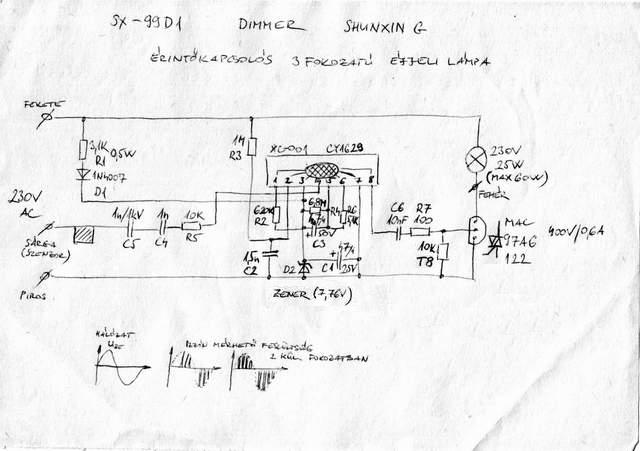 SX-99D1 DIMMER SHUNXING
ÉRINTŐKAPCSOLÓS 3 FOKOZATÚ ÉJJELI LÁMPA
FEKETE
3,1K 0,5W
R1
1N4007
D1
1M
R3
XG-001 CY1629
1 2 3 4 5 6 7 8
230V
25W
(MAX 60W)
FEHÉR
230V
AC
SÁRGA
(SZENZOR)
1n/1kV
C5
1n
C4
10K
R5
620K
R2
6,8M
R4
C3
50V
R6
C6
10nF
R7
100
10K
T8
MAC
97A6
122
400V/0,6A
1,5n
C2
D2
C1
47µ
25V
PIROS
ZENER (7,76V)
HÁLÓZAT
MÉRHETŐ FESZÜLTSÉG
2 KÜL. FOKOZATBAN